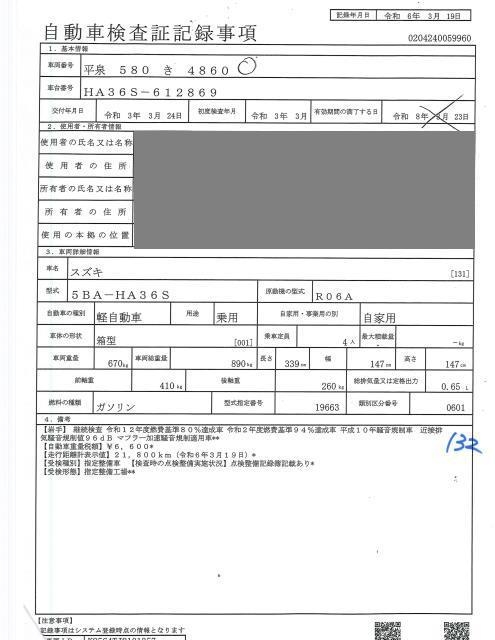 記録年月日 令和 6年 3月 19日
自動車検査証記録事項 0204240059960
1. 基本情報
車両番号 平泉 580 き 4860
車台番号 HA36S-612869
交付年月日 令和 3年 3月 24日 初度検査年月 令和 3年 3月 有効期間の満了する日 令和 8年 3月 23日
2. 使用者・所有者情報
使用者の氏名又は名称
使用者の住所
所有者の氏名又は名称
所有者の住所
使用の本拠の位置
3. 車両詳細情報
車名 スズキ [131]
型式 5BA-HA36S 原動機の型式 R06A
自動車の種別 軽自動車 用途 乗用 自家用・事業用の別 自家用
車体の形状 箱型 [001] 乗車定員 4人 最大積載量 -kg
車両重量 670kg 車両総重量 890kg 長さ 339cm 幅 147cm 高さ 147cm
前軸重 410kg 後軸重 260kg 総排気量又は定格出力 0.65L
燃料の種類 ガソリン 型式指定番号 19663 類別区分番号 0601
4. 備考
【岩手】 継続検査 令和12年度燃費基準80%達成車 令和2年度燃費基準94%達成車 平成10年騒音規制車 近接排
気騒音規制値96dB マフラー加速騒音規制適用車**
【自動車重量税額】¥6,600*
【走行距離計表示値】21,800km(令和6年3月19日)*
【受検種別】指定整備車 【検査時の点検整備実施状況】点検整備記録簿記載あり*
【受検形態】指定整備工場**
132
【注意事項】
記録事項はシステム登録時点の情報となります